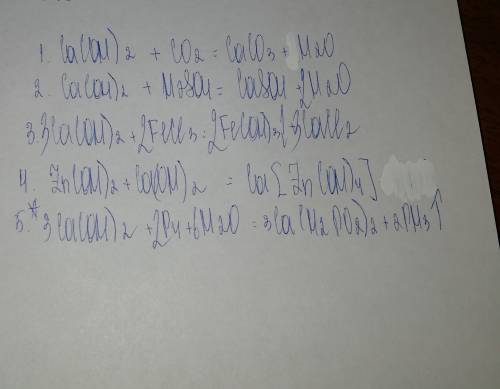 1. Ca(OH)2 + CO2 = CaCO3 + H2O
2. Ca(OH)2 + H2SO4 = CaSO4 + 2H2O
3. 3Ca(OH)2 + 2FeCl3 = 2Fe(OH)3↓ + 3CaCl2
4. Zn(OH)2 + Ca(OH)2 = Ca[Zn(OH)4]
5.* 3Ca(OH)2 + 2P4 + 6H2O = 3Ca(H2PO2)2 + 2PH3↑